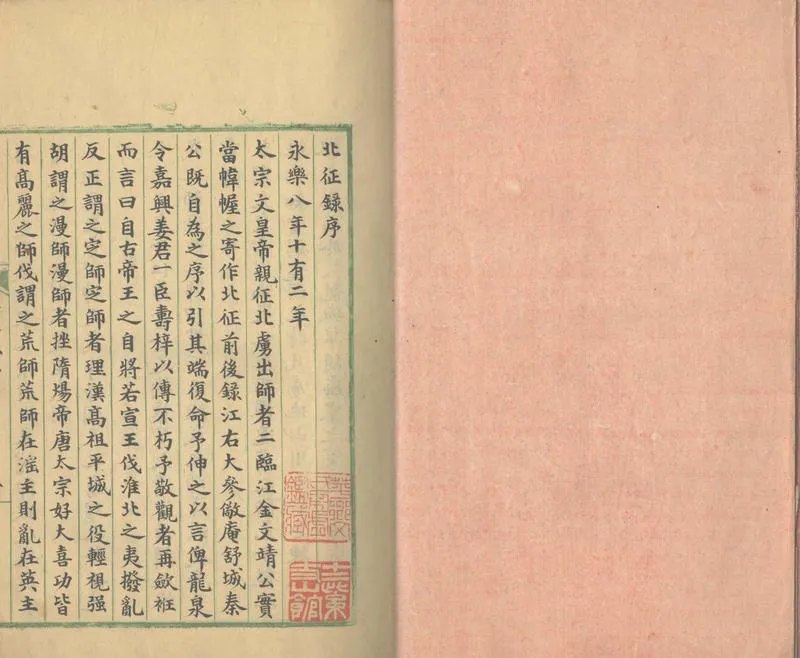 北征録序
永樂八年十有二年
太宗文皇帝親征北虜出師者二臨江金文靖公實
當幃幄之寄作北征前後録江右大參儆庵舒城秦
公既自為之序以引其端復命予伸之以言俾龍泉
令嘉興姜君一臣壽梓以傳不朽予敬觀者再歛袵
而言曰自古帝王之自將若宣王伐淮北之夷撥亂
反正謂之定師定師者理漢髙祖平城之役輕視强
胡謂之漫師漫師者挫隋煬帝唐太宗好大喜功皆
有髙麗之師伐謂之荒師荒師在滛主則亂在英主